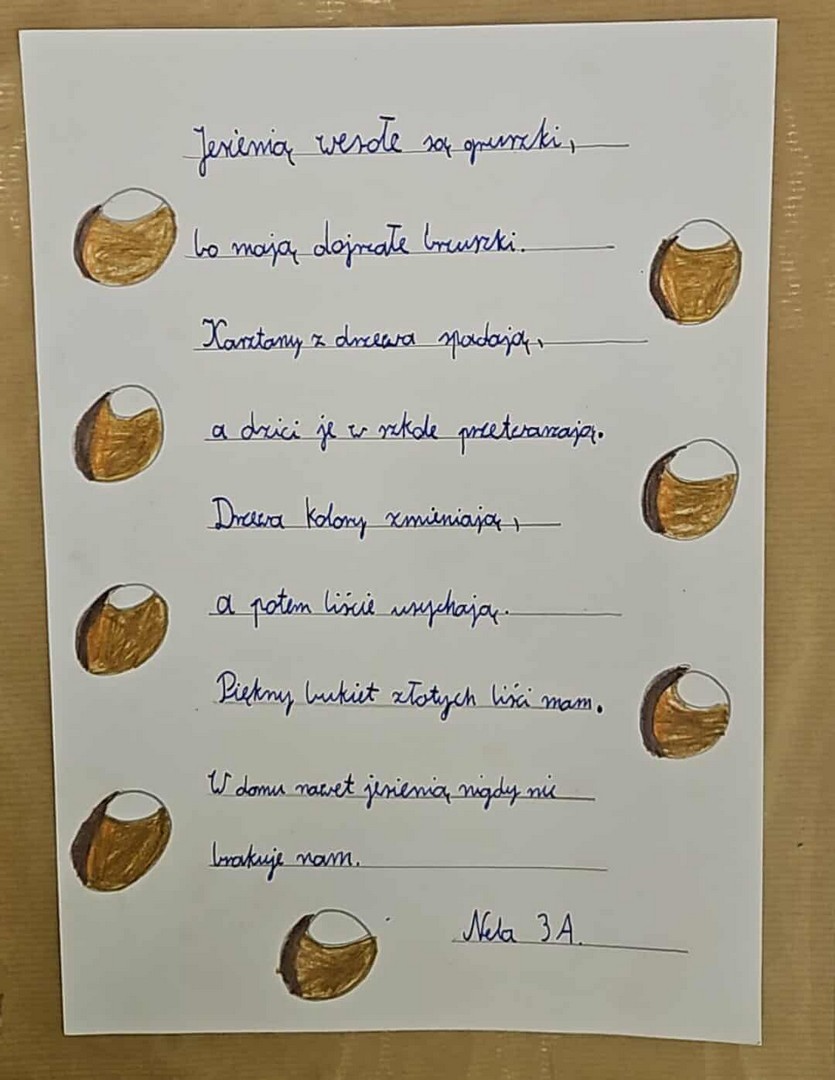 Jesienią wesołe są gruszki,
bo mają dojrzałe brzuszki.
Kasztany z drzewa spadają,
a dzieci je w szkole przetwarzają.
Drzewa kolory zmieniają,
a potem liście usychają.
Piękny bukiet złotych liści mam.
W domu nawet jesienią nigdy nic
brakuje nam.
Nela 3A.